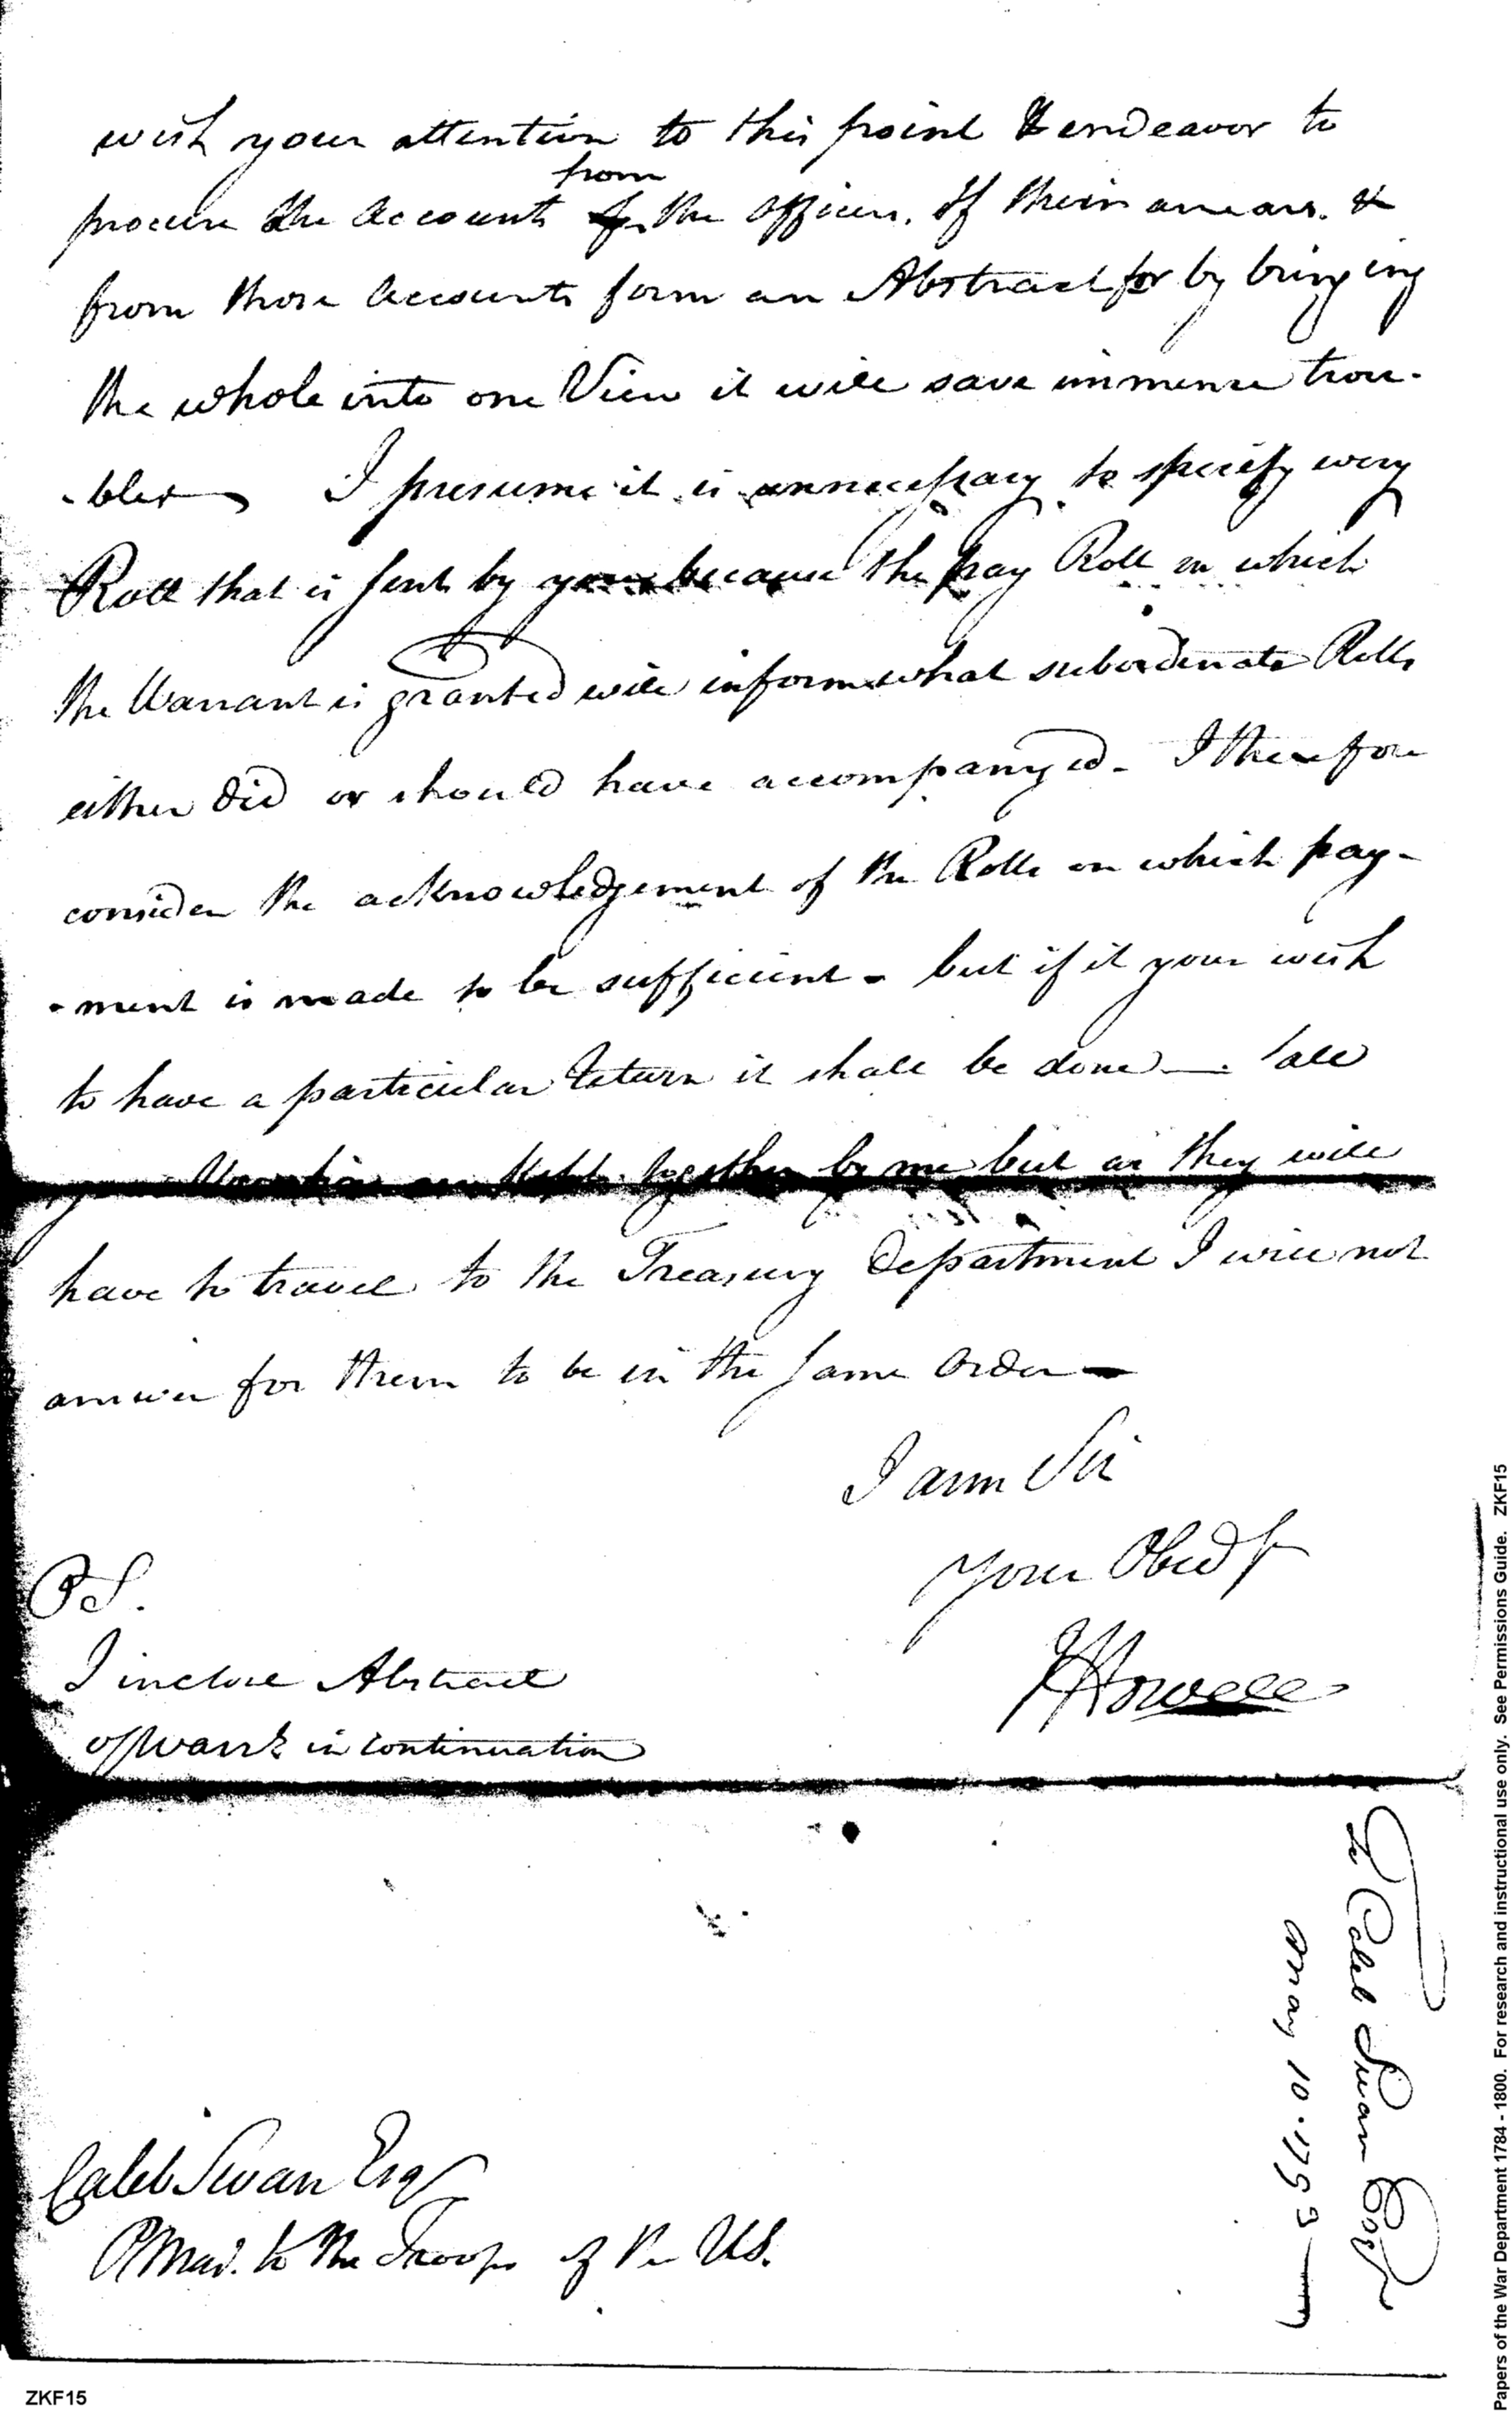 wish your attention to this point & endeavor to
from
procure the accounts the officers. of their arrears. &
from those accounts form an Abstract for by bringing
the whole into one View it will save immense trou-
-bles I presume it is unnecessary to specify every
Roll that is sent by you because the pay Roll on which
the Warrant is granted will inform what subordinate Rolls
either did or should have accompanyed - I therefore
consider the acknowledgement of the Rolls on which pay-
-ment is made to be sufficient - but if it your wish
to have a particular return it shall be done — all
your are Kept together by me but as they will
have to travel to the Treasury department I will not
answer for them to be in the same order —
I am Sir
Your Obedt
JHowell
PS.
I inclose Abstract
of Warrts in continuation
To Caleb Swan Esqr
May 10. 1793
Caleb Swan Esqr
PMas. to the Troops of the US.
ZKF15
Papers of the War Department 1784 - 1800. For research and instructional use only. See Permissions Guide. ZKF15